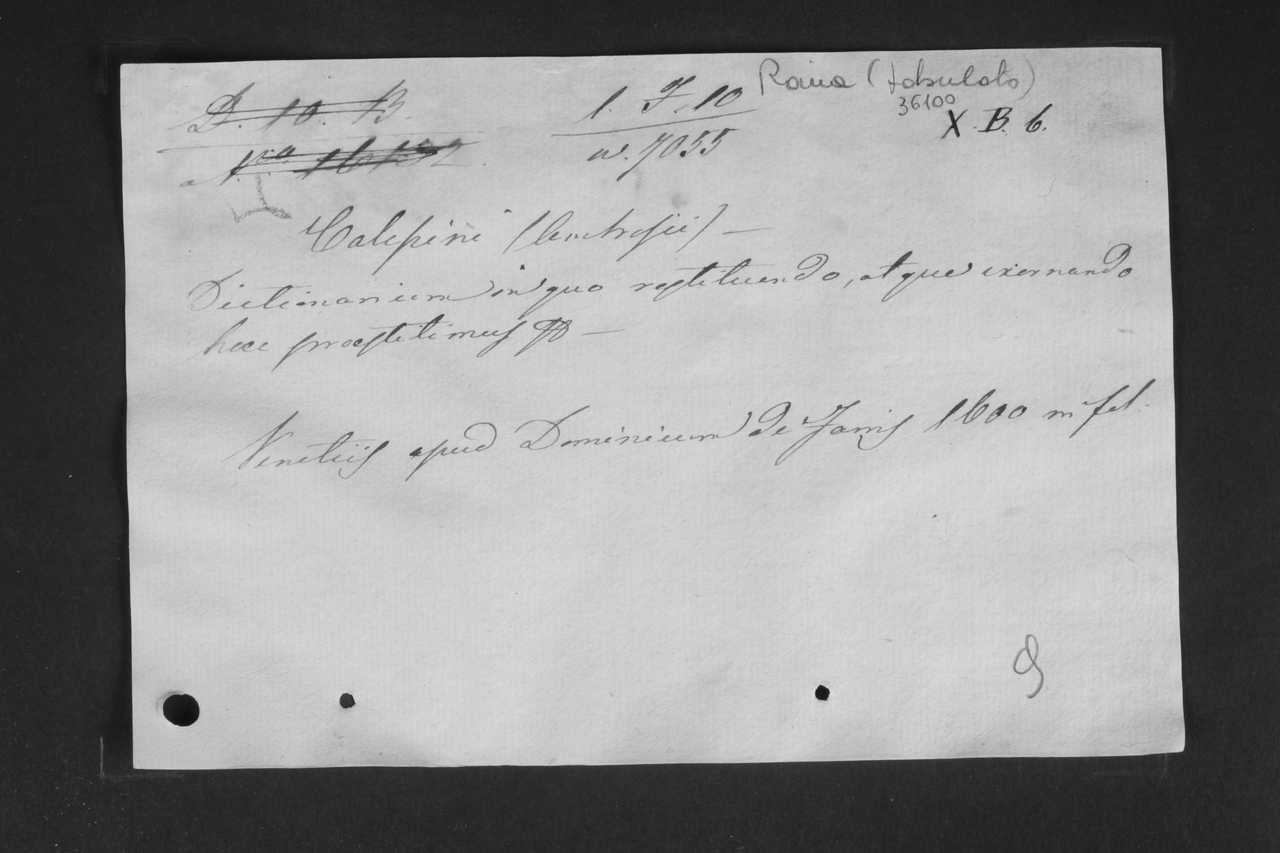 D. 10. B.
1. F. 10
Roma (tabulato)
36100
X. B. 6.
n. 7055
Calepini (Ambrosii) —
Dictionarium in quo restituendo, atque exornando
hæc præstitimus
Venetiis apud Dominicum de Farris 1600 in fol.